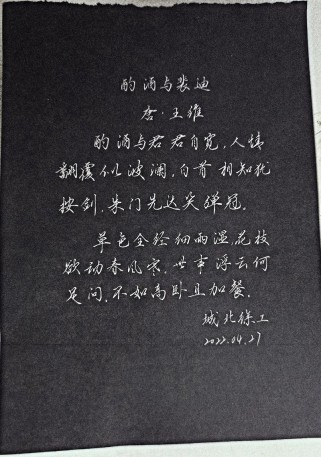 酌酒与裴迪
唐·王维
酌酒与君君自宽,人情
翻覆似波澜,白首相知犹
按剑,朱门先达笑弹冠。
草色全经细雨湿,花枝
欲动春风寒,世事浮云何
足问,不如高卧且加餐。
城北徐工
2022.04.27